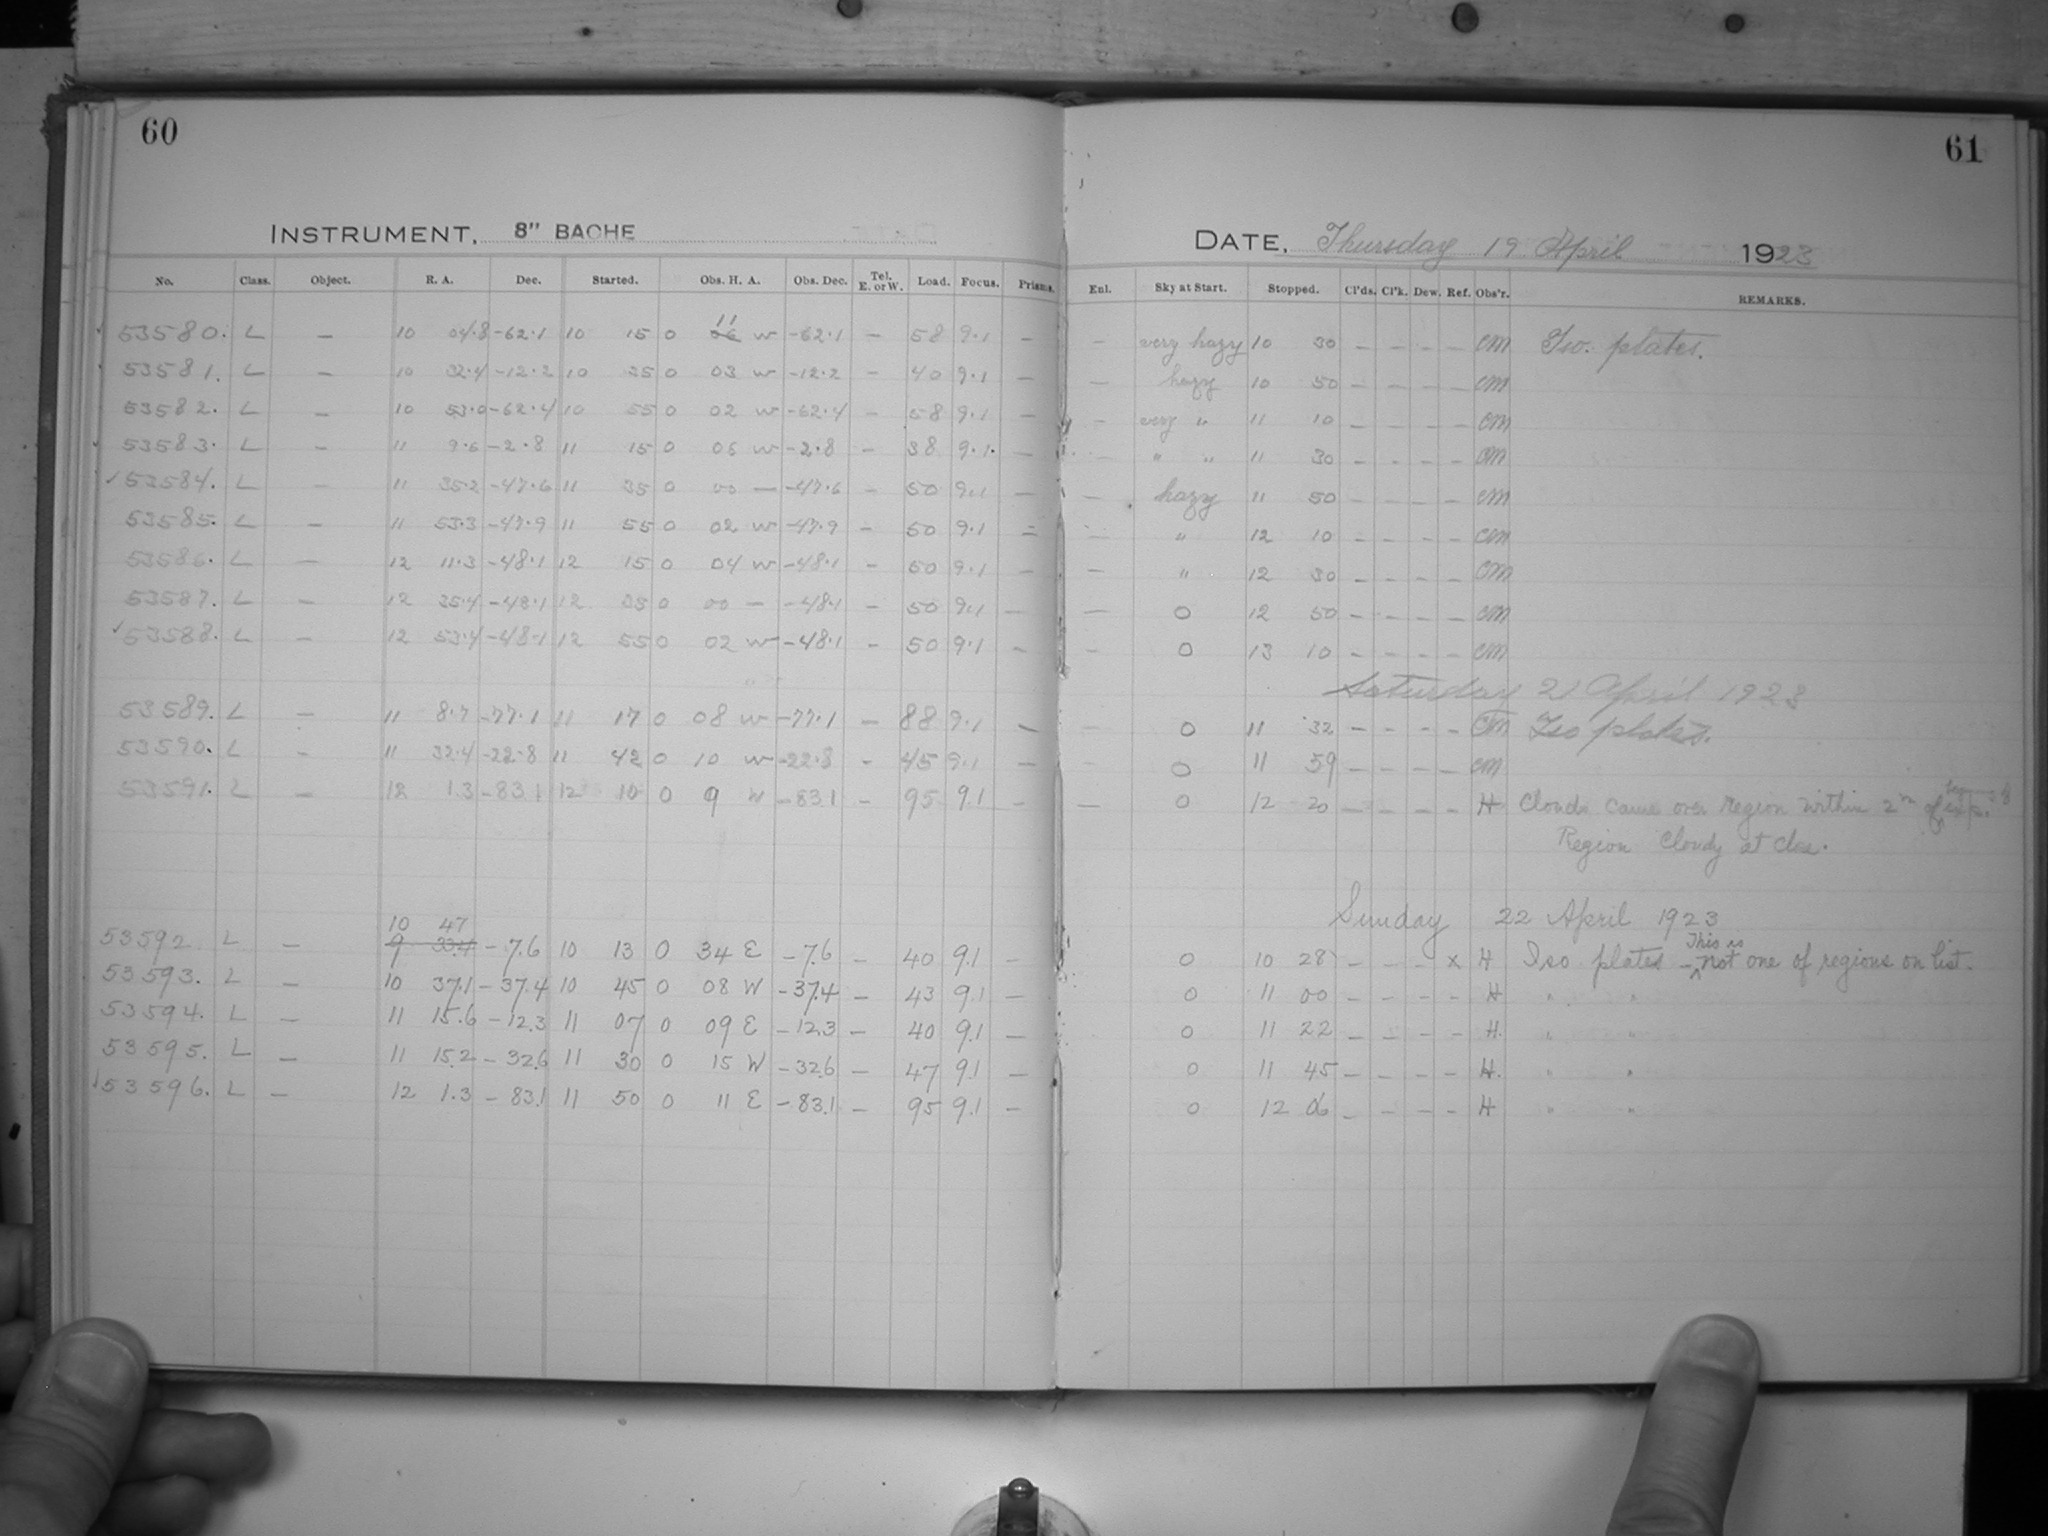 60
INSTRUMENT, 8" BACHE
No. Class. Object. R. A. Dec. Started. Obs. H. A. Obs. Dec. Tel. E. or W. Load. Focus. Prisms.
53580. L — 10 04.8 -62.1 10 15 0 11 W -62.1 — 58 9.1 —
53581. L — 10 32.4 -12.2 10 35 0 03 W -12.2 — 40 9.1 —
53582. L — 10 53.0 -62.4 10 55 0 02 W -62.4 — 58 9.1 —
53583. L — 11 9.6 -2.8 11 15 0 05 W -2.8 — 38 9.1. —
53584. L — 11 35.2 -47.6 11 35 0 00 — -47.6 — 50 9.1 —
53585. L — 11 53.3 -47.9 11 55 0 02 W -47.9 — 50 9.1 —
53586. L — 12 11.3 -48.1 12 15 0 04 W -48.1 — 50 9.1 —
53587. L — 12 35.4 -48.1 12 35 0 00 — -48.1 — 50 9.1 —
53588. L — 12 53.4 -48.1 12 55 0 02 W -48.1 — 50 9.1 —
53589. L — 11 8.7 -77.1 11 17 0 08 W -77.1 — 88 9.1 —
53590. L — 11 32.4 -22.8 11 42 0 10 W -22.8 — 45 9.1 —
53591. L — 12 1.3 -83.1 12 10 0 9 W -83.1 — 95 9.1 —
10 47
53592 L — 9 33.4 -7.6 10 13 0 34 E -7.6 — 40 9.1 —
53593. L — 10 37.1 -37.4 10 45 0 08 W -37.4 — 43 9.1 —
53594. L — 11 15.6 -12.3 11 07 0 09 E -12.3 — 40 9.1 —
53595. L — 11 15.2 -32.6 11 30 0 15 W -32.6 — 47 9.1 —
53596. L — 12 1.3 -83.1 11 50 0 11 E -83.1 — 95 9.1 —
61
DATE, Thursday 19 April 1923
Enl. Sky at Start. Stopped. Cl'ds. Cl'k. Dew. Ref. Obs'r. REMARKS.
— very hazy 10 30 — — — — CM Iso. plates.
— hazy 10 50 — — — — CM
— very " 11 10 — — — — CM
— " " 11 30 — — — — CM
— hazy 11 50 — — — — CM
— " 12 10 — — — — CM
— " 12 30 — — — — CM
— 0 12 50 — — — — CM
— 0 13 10 — — — — CM
Saturday 21 April 1923
— 0 11 32 — — — — CM Iso plates.
— 0 11 59 — — — — CM
— 0 12 20 — — — — H Clouds came over region within 2m of exp.
Region Cloudy at close.
Sunday 22 April 1923
0 10 28 — — — x H Iso plates — This is not one of regions on list.
0 11 00 — — — — H " "
0 11 22 — — — — H. " "
0 11 45 — — — — H. " "
0 12 06 — — — — H " "